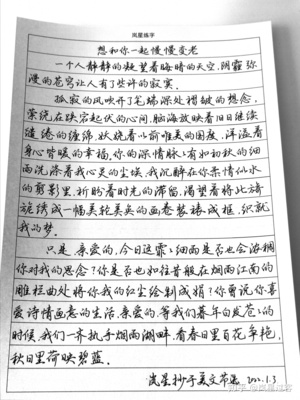 岚星练字
想和你一起慢慢变老
一个人静静的凝望着晦暗的天空，阴霾弥
漫的苍穹让人有了些许的寂寞。
孤寂的风吹开了笔端深处褶皱的想念，
萦绕在跌宕起伏的心间，脑海放映着旧日缱绻
缱绻的缠绵，妖娆着以前唯美的国度，洋溢着
身心皆暖的幸福。你的深情脉脉有如初秋的细
雨洗涤着我心灵的尘埃，我沉醉在你柔情似水
的剪影里，祈盼着时光的滞留，渴望着将此旖
旎绣成一幅美轮美奂的画卷装裱成框，织就
我的梦。
只是，亲爱的，今日这霏霏细雨是否也会浓稠
你对我的思念？你是否也如往昔般在烟雨江南的
雕栏曲处将你我的红尘绘制成娟？你曾说你喜
爱诗情画意的生活，亲爱的，等我们暮年白发苍苍的
时候，我们一齐执手烟雨湖畔，看春日里百花争艳，
秋日里荷映碧蓝。
岚星抄于美文节选 2022.1.3
知乎 @岚星感客